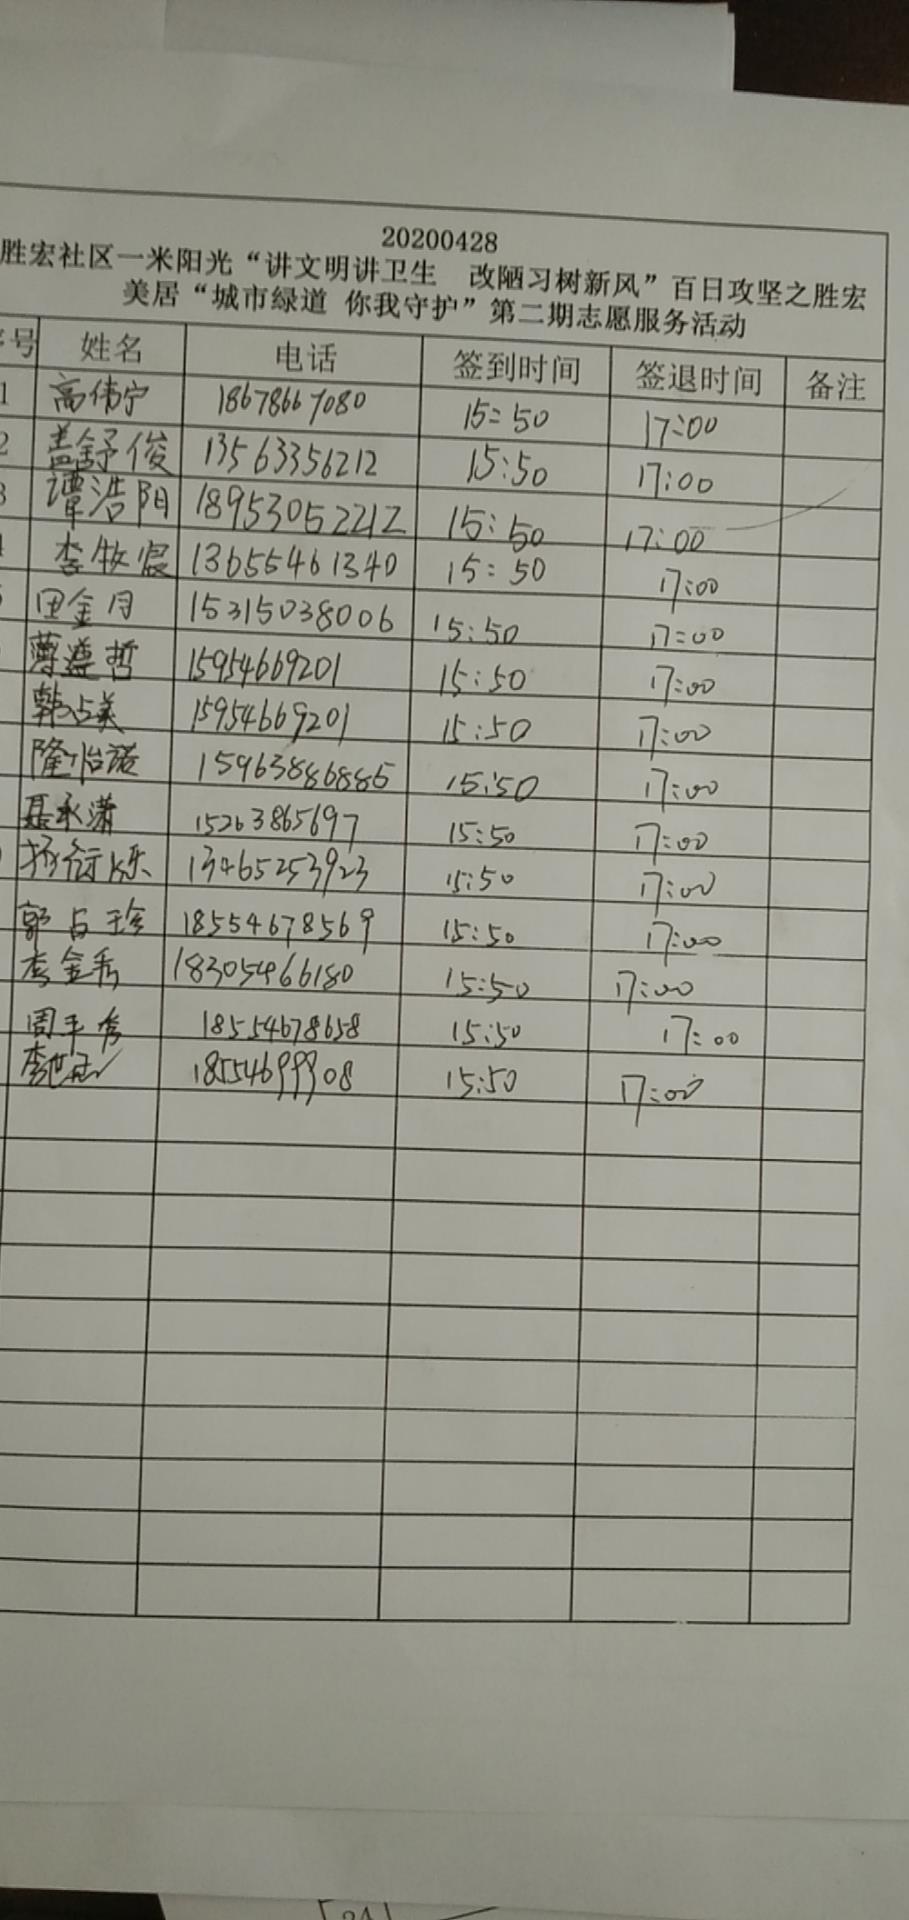 20200428
胜宏社区一米阳光“讲文明讲卫生 改陋习树新风”百日攻坚之胜宏
美居“城市绿道 你我守护”第二期志愿服务活动
号 姓名 电话 签到时间 签退时间 备注
1 高伟宁 18678667080 15:50 17:00
2 盖舒俊 13563356212 15:50 17:00
3 谭浩阳 18953052212 15:50 17:00
李牧宸 13655461340 15:50 17:00
田金月 15315038006 15:50 17:00
薄遵哲 15954669201 15:50 17:00
韩占美 15954669201 15:50 17:00
隆怡诺 15963886885 15:50 17:00
聂承潇 15263865697 15:50 17:00
13465253923 15:50 17:00
郭占珍 18554678569 15:50 17:00
李金秀 18305466180 15:50 17:00
周平秀 18554678658 15:50 17:00
18554699908 15:50 17:00